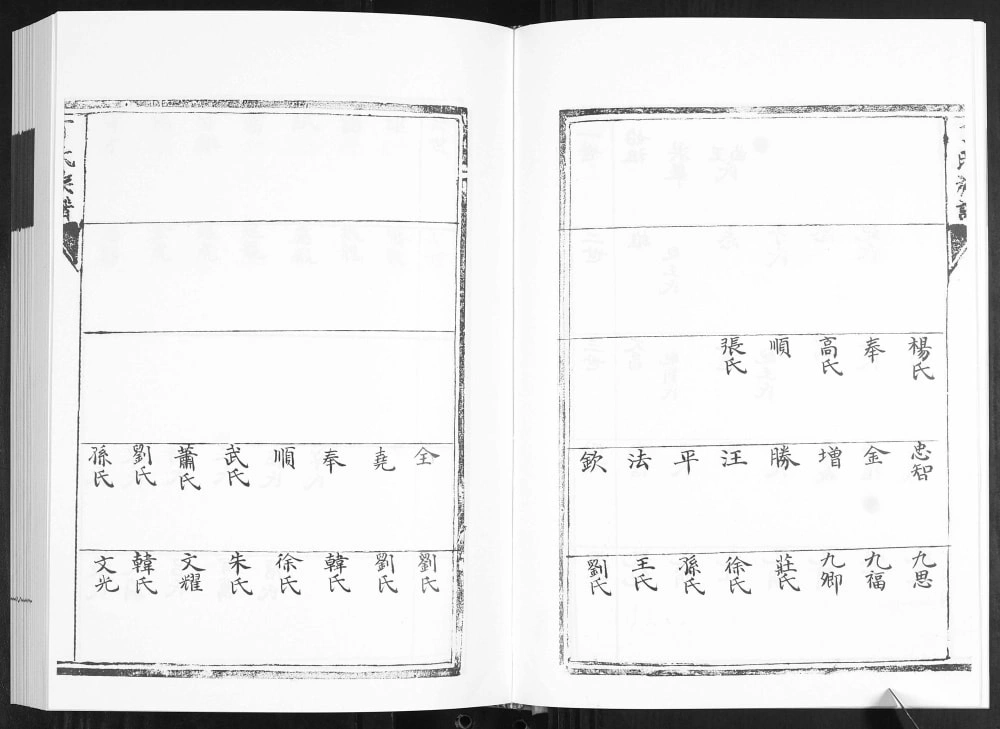 楊氏
奉
高氏
順
張氏
忠智
金
增
勝
汪
平
法
欽
九思
九福
九卿
莊氏
徐氏
孫氏
王氏
劉氏
全
堯
奉
順
武氏
蕭氏
劉氏
孫氏
劉氏
劉氏
韓氏
徐氏
朱氏
文耀
韓氏
文光
氏族譜